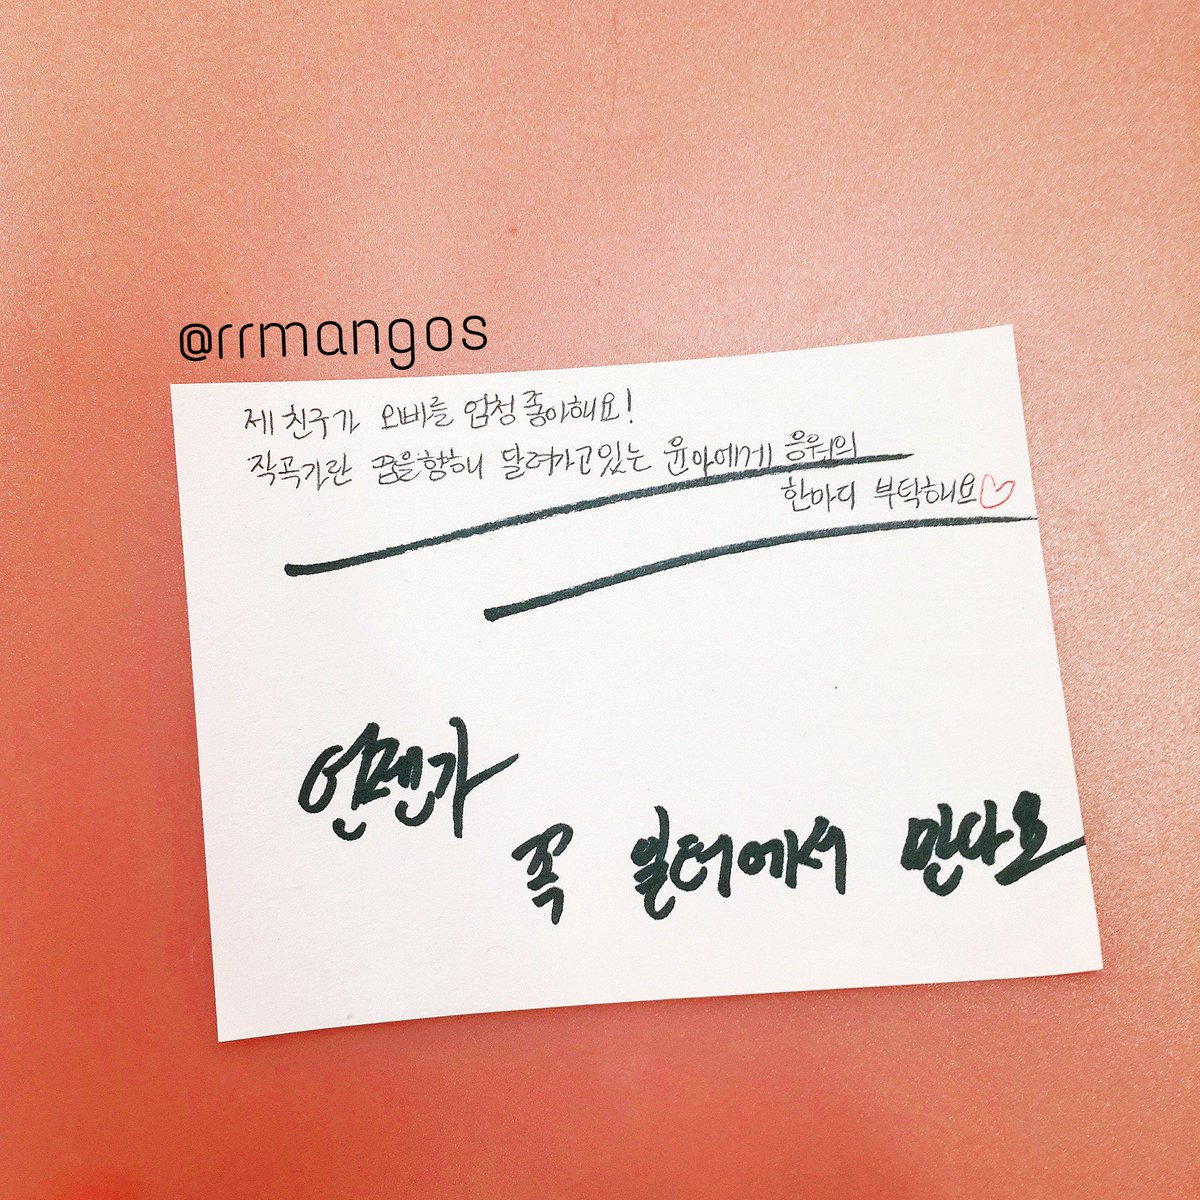 @rrmangos
제 친구가 오빠를 엄청 좋아해요!
작곡가란 꿈을향해 달려가고있는 윤아에게 응원의
한마디 부탁해요♡
언젠가
꼭 일터에서 만나요